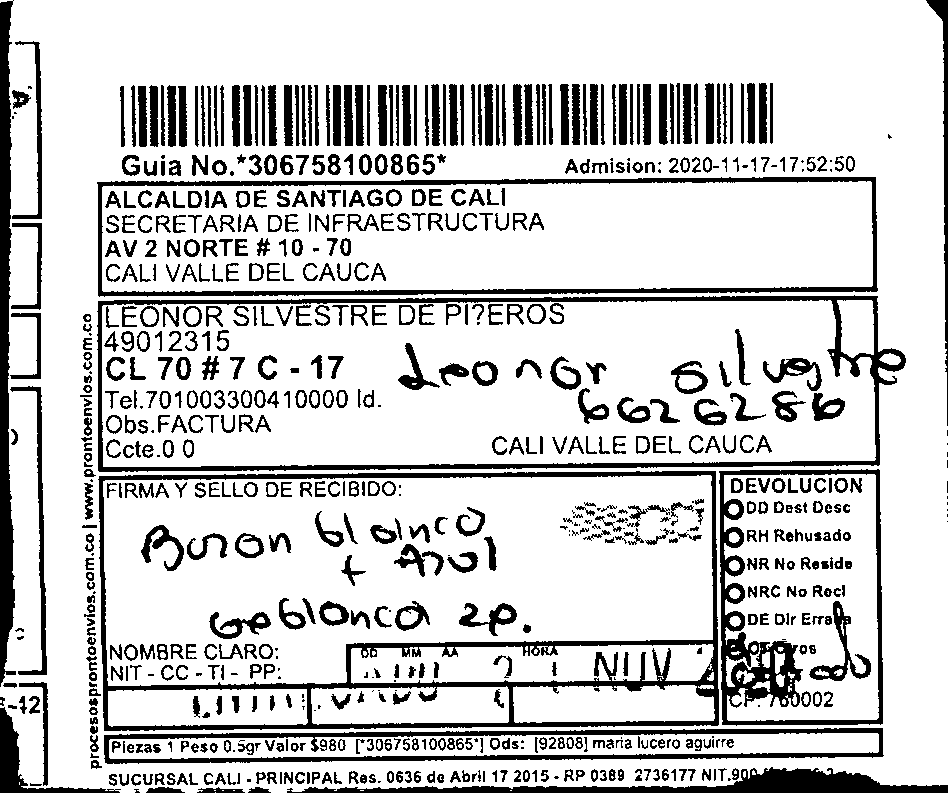 Guia No.*306758100865*
Admision: 2020-11-17-17:52:50
ALCALDIA DE SANTIAGO DE CALI
SECRETARIA DE INFRAESTRUCTURA
AV 2 NORTE # 10 - 70
CALI VALLE DEL CAUCA
LEONOR SILVESTRE DE PI?EROS
49012315
CL 70 # 7 C - 17
Leonor silvestre
Tel.701003300410000 Id.
6626286
Obs.FACTURA
Ccte.0 0
CALI VALLE DEL CAUCA
procesosprontoenvios.com.co | www.prontoenvios.com.co
FIRMA Y SELLO DE RECIBIDO:
Buzon blanco
+ Azul
blanca 2p.
NOMBRE CLARO:
NIT - CC - TI - PP:
DD MM AA HORA
21 NOV
DEVOLUCION
DD Dest Desc
RH Rehusado
NR No Reside
NRC No Recl
DE Dir Errada
CP: 760002
Piezas 1 Peso 0.5gr Valor $980 [*306758100865*] Ods: [92808] maria lucero aguirre
SUCURSAL CALI - PRINCIPAL Res. 0636 de Abril 17 2015 - RP 0389 2736177 NIT.900
-12